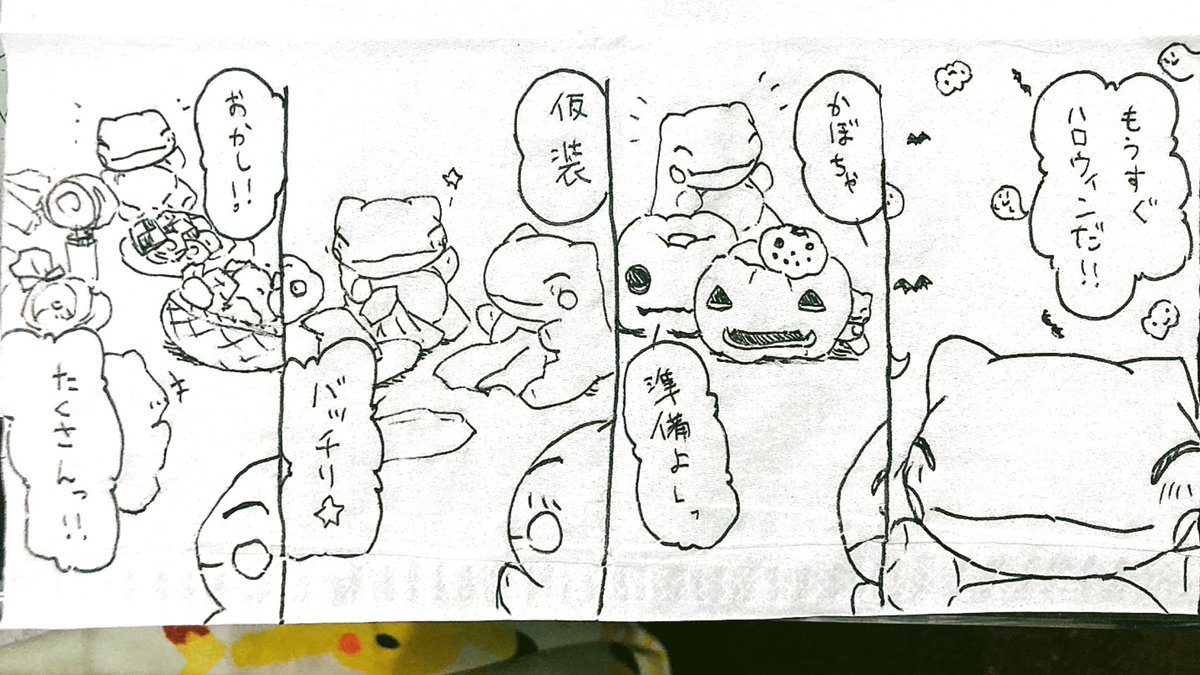 もうすぐ
ハロウィンだ!!
かぼちゃ
準備よしっ
仮装
バッチリ☆
おかし!!
たくさんっ!!